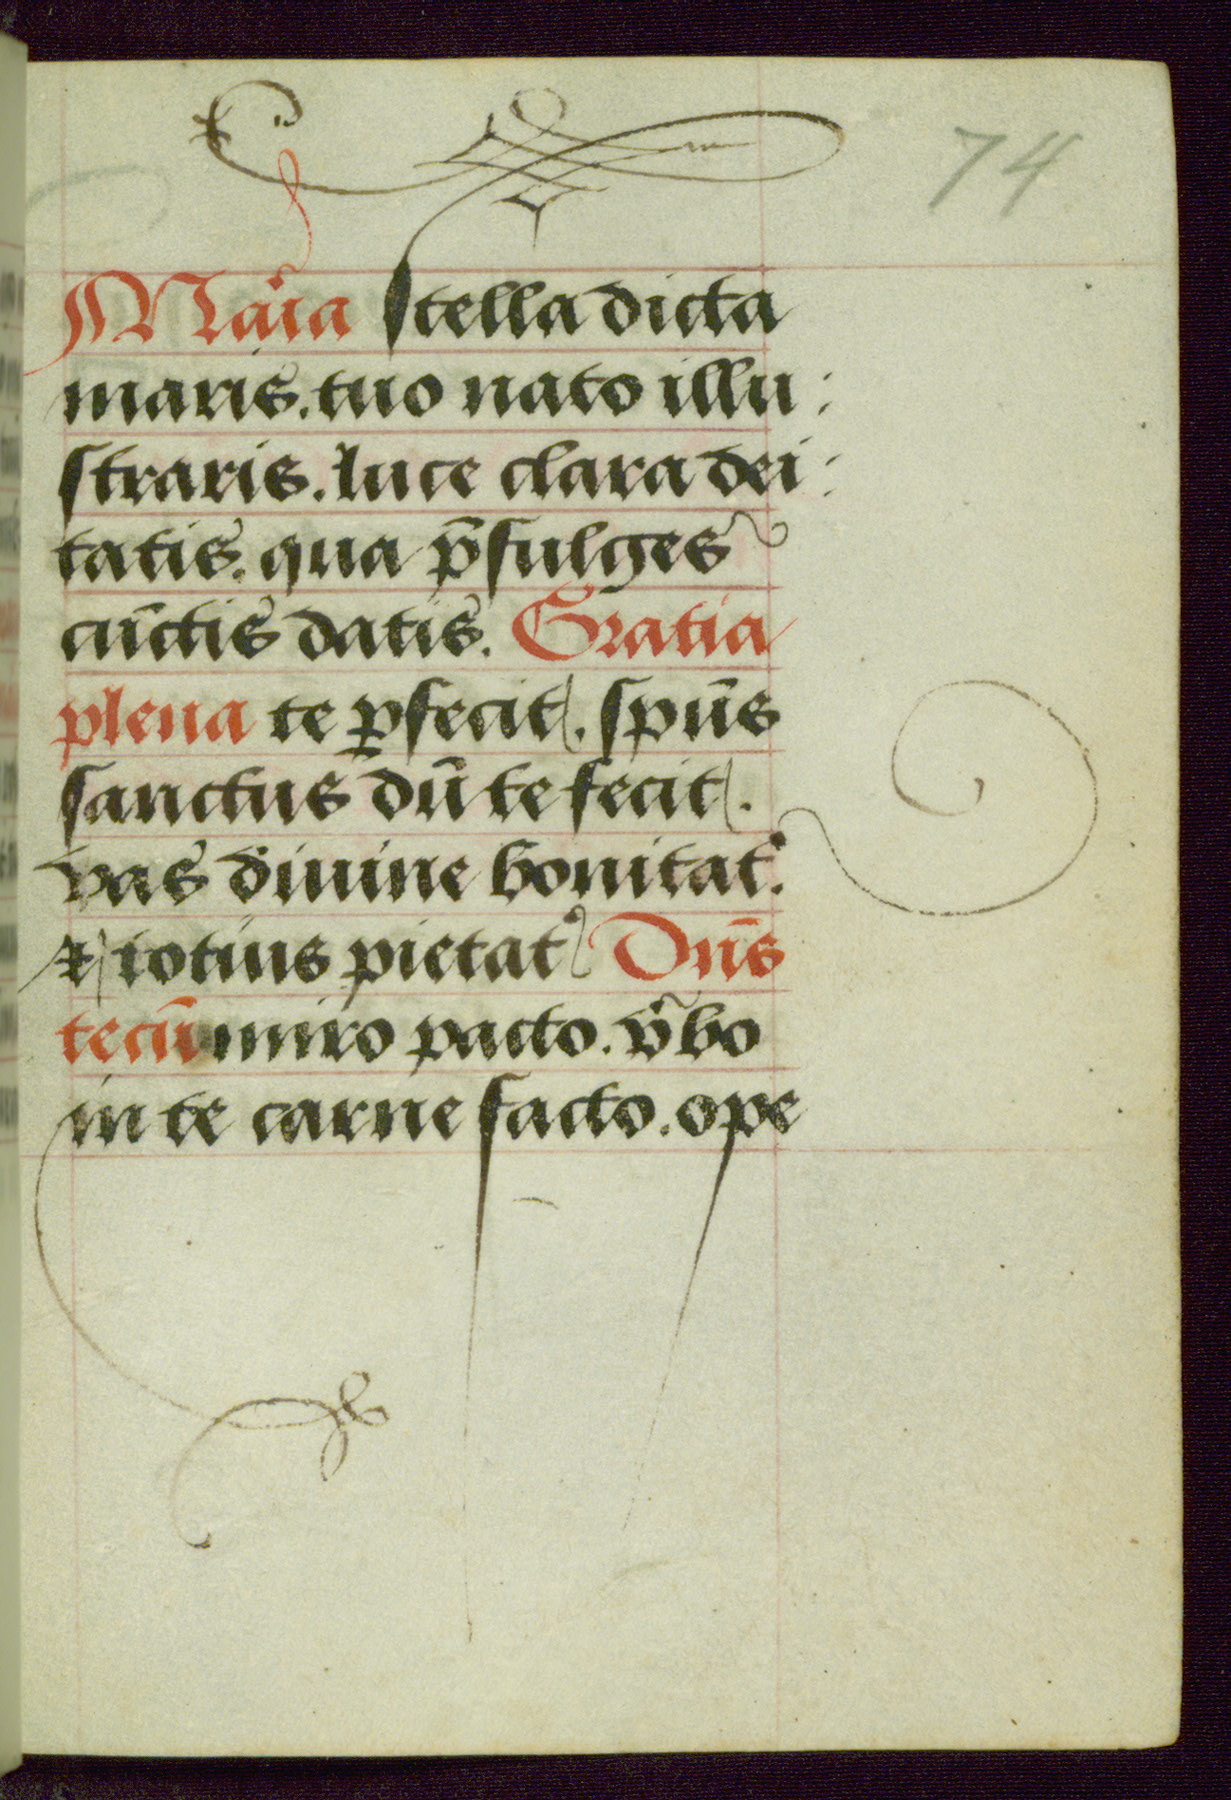 74
Maria Stella dicta
maris. tuo nato illu:
straris. luce clara dei:
tatis. qua p̄fulges
cūctis datis. Gratia
plena te ꝑfecit. spūs
sanctus dū te fecit.
vas diuine bonitatꝰ.
et totius pietatꝰ Dn̄s
tecū miro pacto. v̄bo
in te carne facto. ope